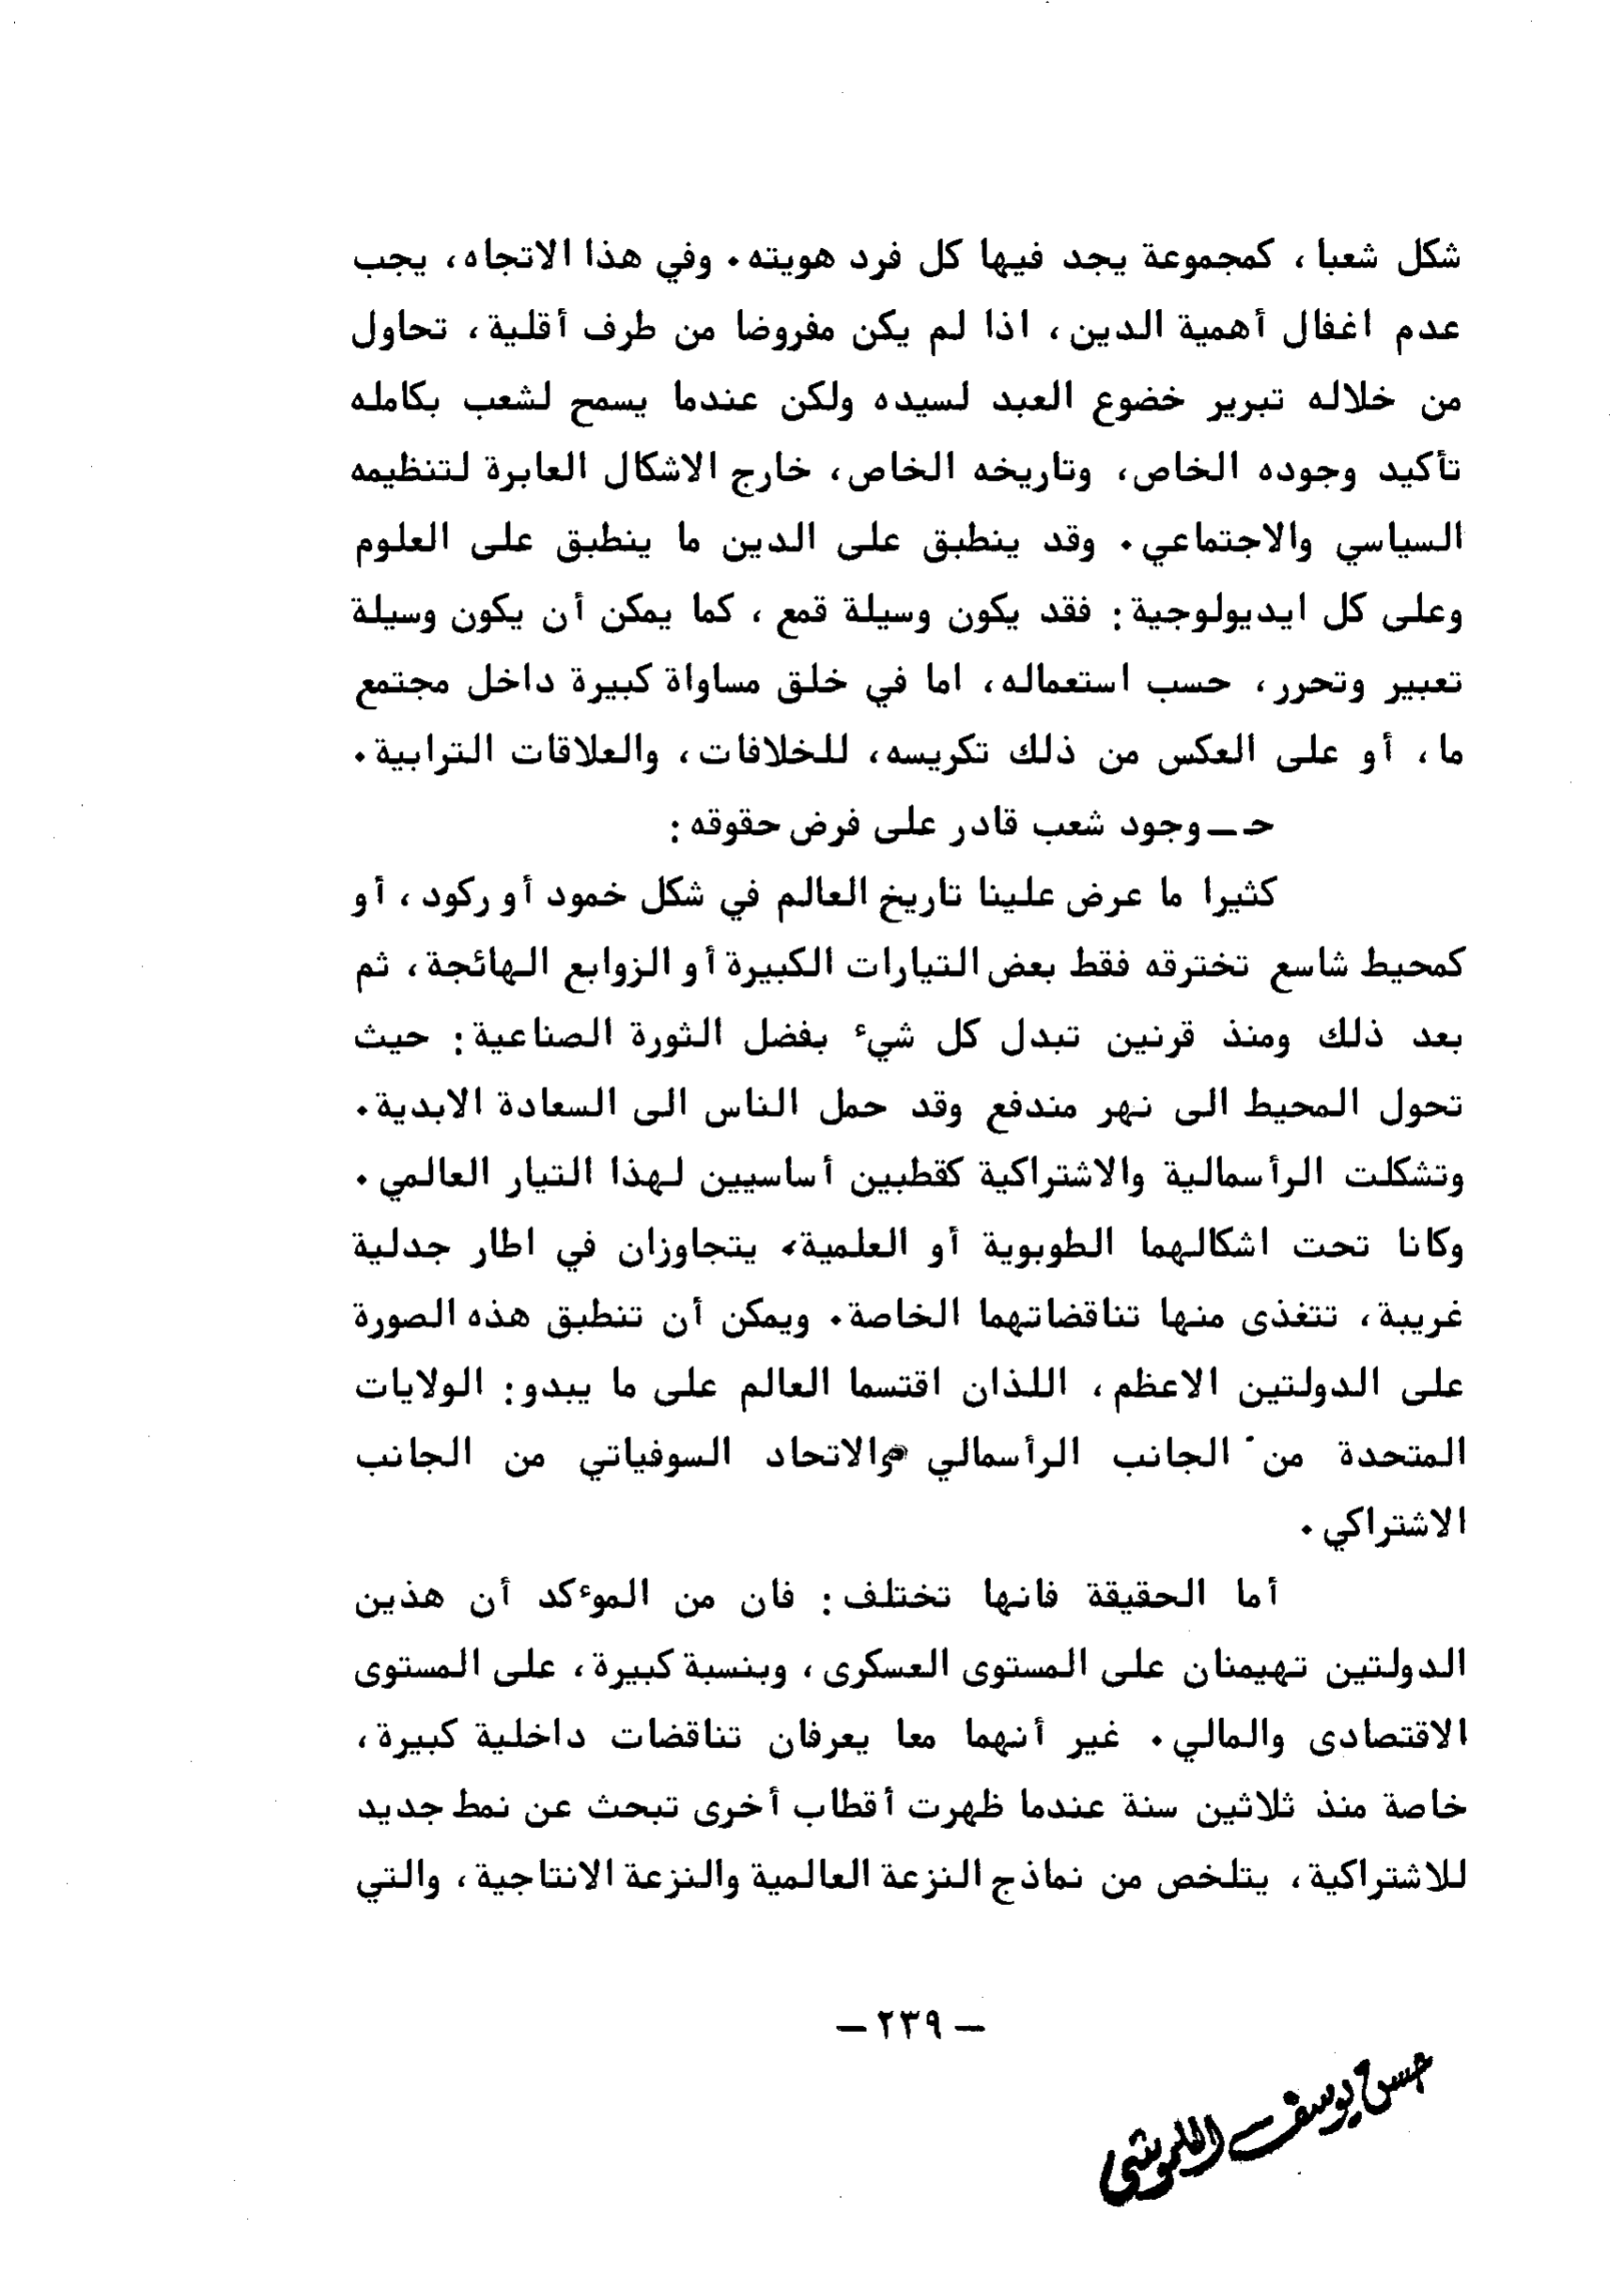 شكل شعبا ، كمجموعة يجد فيها كل فرد هويته . وفي هذا الاتجاه ، يجب
عدم اغفال أهمية الدين ، اذا لم يكن مفروضا من طرف أقلية ، تحاول
من خلاله تبرير خضوع العبد لسيده ولكن عندما يسمح لشعب بكامله
تأكيد وجوده الخاص ، وتاريخه الخاص ، خارج الاشكال العابرة لتنظيمه
السياسي والاجتماعي . وقد ينطبق على الدين ما ينطبق على العلوم
وعلى كل ايديولوجية : فقد يكون وسيلة قمع ، كما يمكن أن يكون وسيلة
تعبير وتحرر ، حسب استعماله ، اما في خلق مساواة كبيرة داخل مجتمع
ما ، أو على العكس من ذلك تكريسه ، للخلافات ، والعلاقات الترابية .
حـ — وجود شعب قادر على فرض حقوقه :
كثيرا ما عرض علينا تاريخ العالم في شكل خمود أو ركود ، أو
كمحيط شاسع تخترقه فقط بعض التيارات الكبيرة أو الزوابع الهائجة ، ثم
بعد ذلك ومنذ قرنين تبدل كل شيء بفضل الثورة الصناعية : حيث
تحول المحيط الى نهر مندفع وقد حمل الناس الى السعادة الابدية .
وتشكلت الرأسمالية والاشتراكية كقطبين أساسيين لهذا التيار العالمي .
وكانا تحت اشكالهما الطوبوية أو العلمية ، يتجاوزان في اطار جدلية
غريبة ، تتغذى منها تناقضاتهما الخاصة . ويمكن أن تنطبق هذه الصورة
على الدولتين الاعظم ، اللذان اقتسما العالم على ما يبدو : الولايات
المتحدة من الجانب الرأسمالي والاتحاد السوفياتي من الجانب
الاشتراكي .
أما الحقيقة فانها تختلف : فان من الموءكد أن هذين
الدولتين تهيمنان على المستوى العسكرى ، وبنسبة كبيرة ، على المستوى
الاقتصادى والمالي . غير أنهما معا يعرفان تناقضات داخلية كبيرة ،
خاصة منذ ثلاثين سنة عندما ظهرت أقطاب أخرى تبحث عن نمط جديد
للاشتراكية ، يتلخص من نماذج النزعة العالمية والنزعة الانتاجية ، والتي
— ٢٣٩ —
حسن يوسف